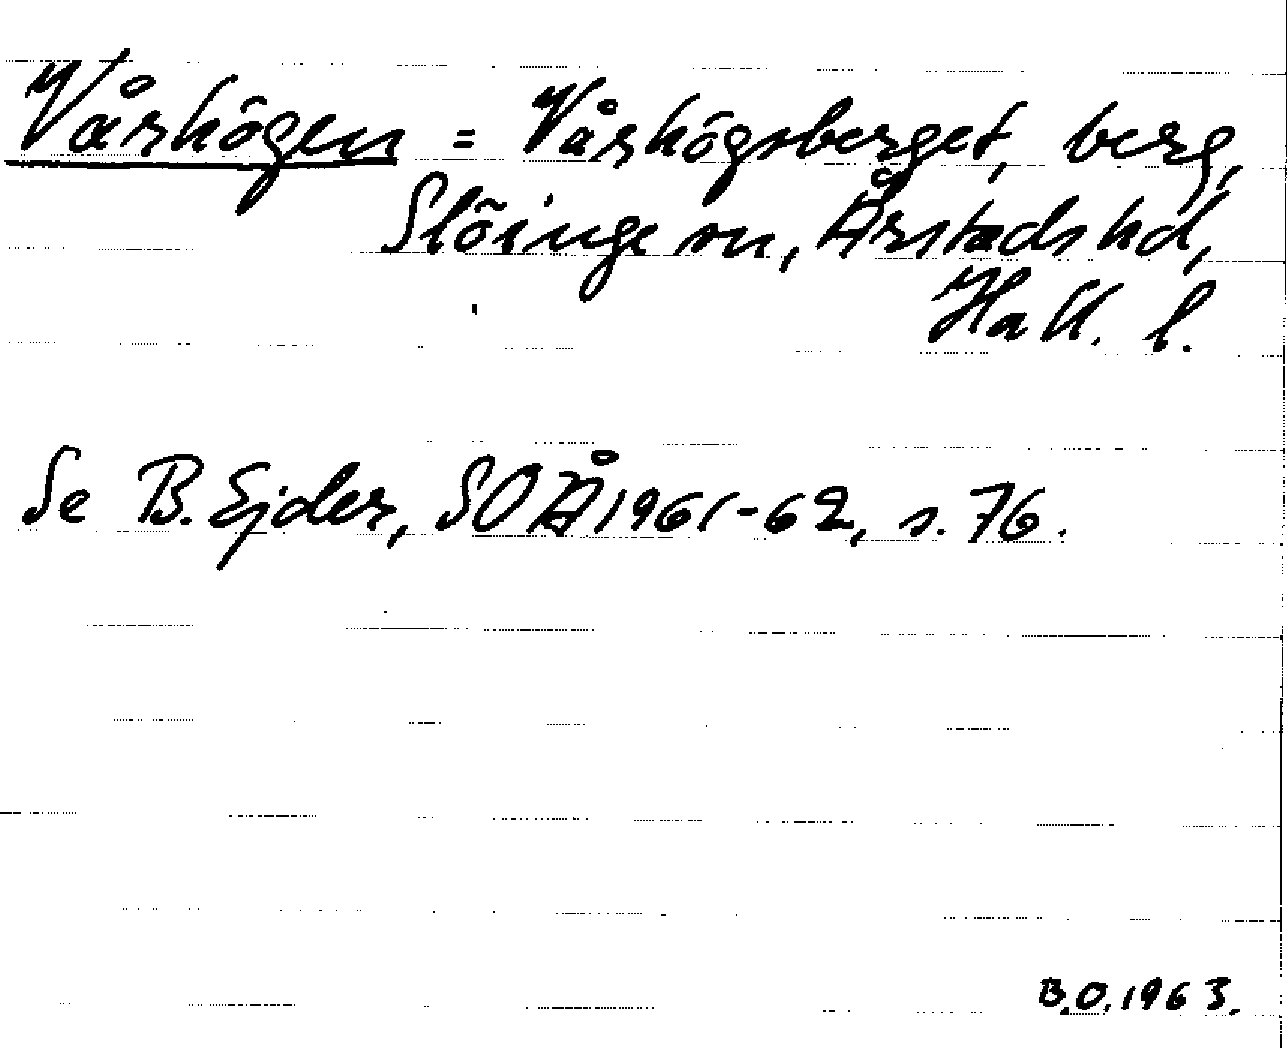 Vårhögen = Vårhögsberget, berg,
Slöinge sn, Årstads hd,
Hall. l.
Se B. Ejder, SOÅ 1961-62, s. 76.
B.O. 1963.